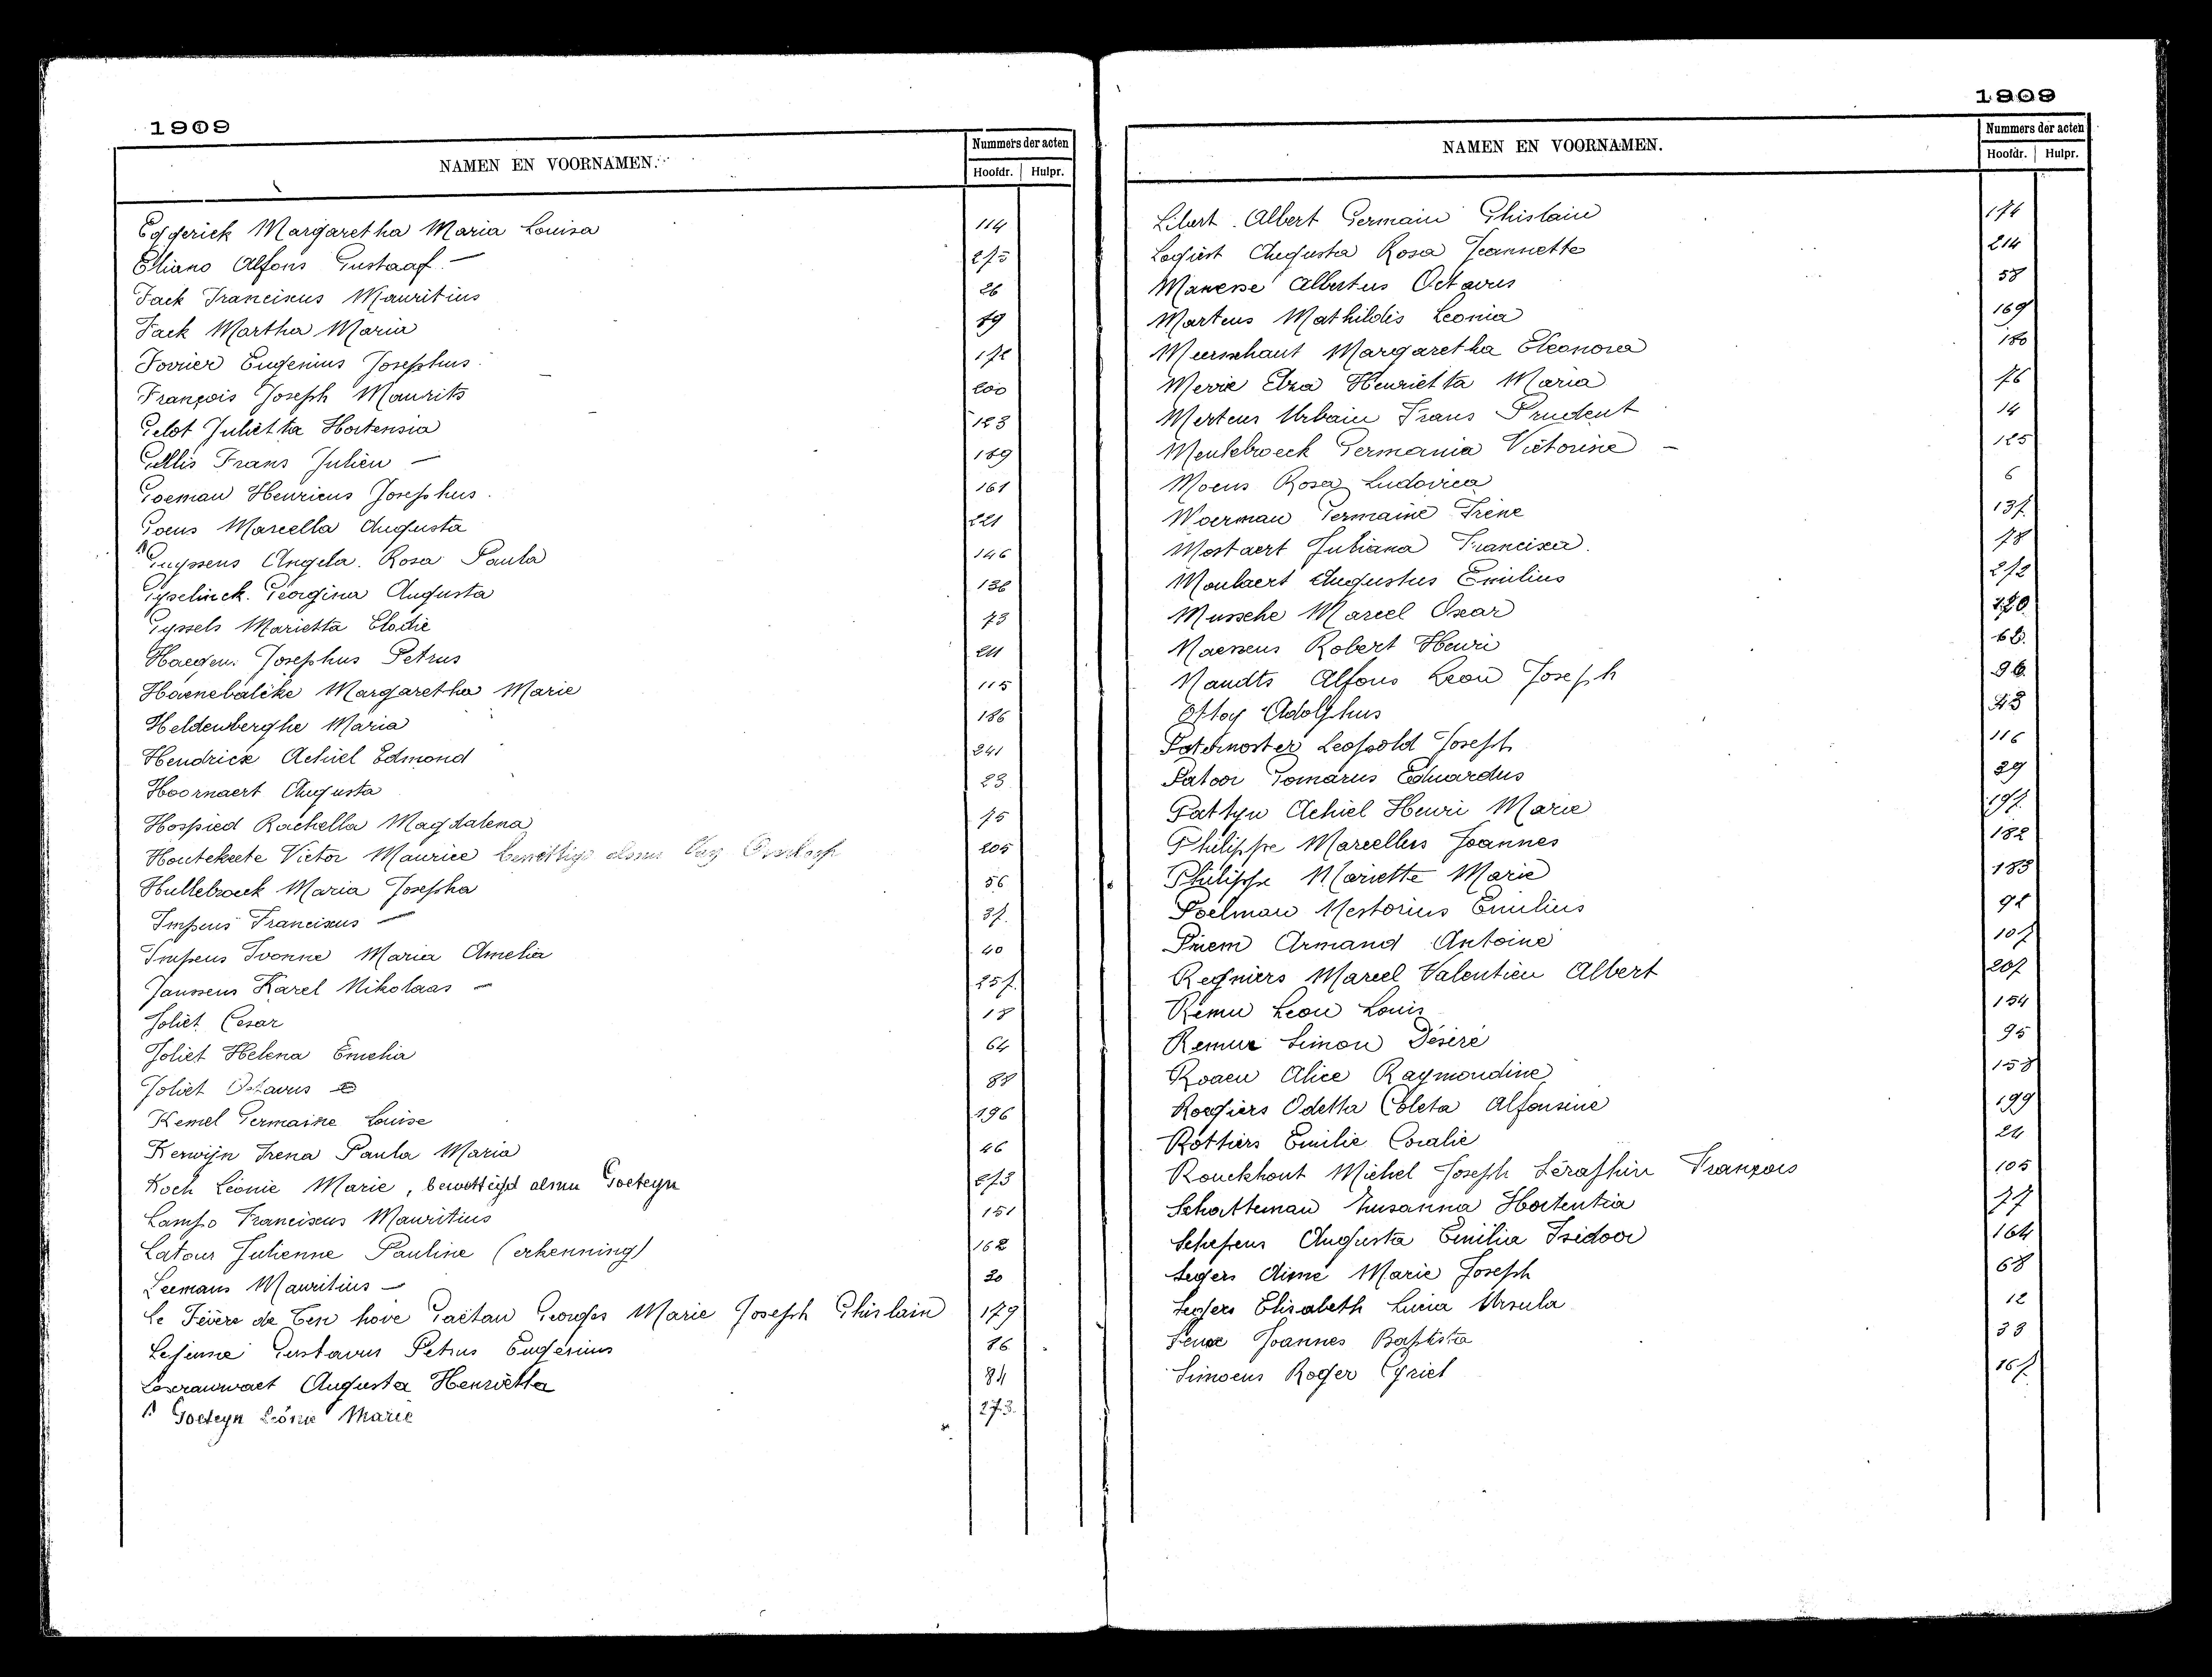 1909
NAMEN EN VOORNAMEN.
Nummers der acten
Hoofdr. | Hulpr.
Eggerick Margaretha Maria Louisa 114
Etiano Alfons Gustaaf. — 275
Fack Franciscus Mauritius 26
Fack Martha Maria 89
Fovrier Eugenius Josephus. 172
François Joseph Maurits 200
Gelot Julietta Hortensia 123
Gillis Frans Julien — 189
Goeman Henricus Josephus. 161
Goens Marcella Augusta 221
Guyssens Angela Rosa Paula 146
Gyselinck Georgina Augusta 132
Gyssels Marietta Elodie 73
Haegen. Josephus Petrus 211
Haenebalcke Margaretha Marie 115
Heldenberghe Maria 186
Hendrickx Achiel Edmond 241
Hoornaert Augusta 23
Hospied Rachella Magdalena 75
Houtekeete Victor Maurice 205
Hullebroeck Maria Josepha 56
Impens Franciscus — 37.
Impens Ivonne Maria Amelia 40
Janssens Karel Nikolaas — 257.
Joliet Cesar 18
Joliet Helena Emelia 64
Joliet Octavus 88
Kemel Germaine Louise 196
Kerwijn Irena Paula Maria 46
Koch Léonie Marie, bewettigd alsnu Goeteyn 273
Lampo Franciscus Mauritius 151
Latour Julienne Pauline (erkenning) 162
Leemans Mauritius — 20
le Fèvere de Ten hove Gaëtan Georges Marie Joseph Ghislain 179
Lejeune Gustavus Petrus Eugenius 86
Augusta Henrietta 84
Goeteyn Léonie Marie 273.
1909
NAMEN EN VOORNAMEN.
Nummers der acten
Hoofdr. | Hulpr.
Libert Albert Germain Ghislain 174
Logiest Augusta Rosa Jeannette 214
Manesse Albertus Octavus 58
Martens Mathildis Leonia 169
Meersschaut Margaretha Eleonora 180
Merrie Elza Henrietta Maria 76
Mertens Urbain Frans Prudent 14
Meulebroeck Germania Victorine — 125
Moens Rosa Ludovica 6
Moerman Germaine Irène 137.
Mostaert Juliana Francisca. 78
Moulaert Augustus Emilius 272
Mussche Marcel Oscar 220
Naessens Robert Henri 62.
Nandts Alfons Leon Joseph 96.
Ottoy Adolphus 43
Paternoster Leopold Joseph 116
Patoor Gomarus Eduardus 29
Pattyn Achiel Henri Marie 197.
Philippe Marcellus Joannes 182
Philippe Mariette Marie 183
Poelman Nestorius Emilius 92
Priem Armand Antoine 107
Regniers Marcel Valentien Albert 207
Remu Leon Louis 154
Remue Simon Désiré 95
Roaen Alice Raymondine 158
Roegiers Odetta Coleta Alfonsine 199
Rottiers Emilie Coralie 24
Rouckhout Michel Joseph Séraphin François 105
Schatteman Susanna Hortentia 77
Schepens Augusta Emilia Isidoor 164
Segers Aimé Marie Joseph 68
Segers Elisabeth Lucia Ursula 12
Joannes Baptista 33
Simoens Roger Cyriel 167.